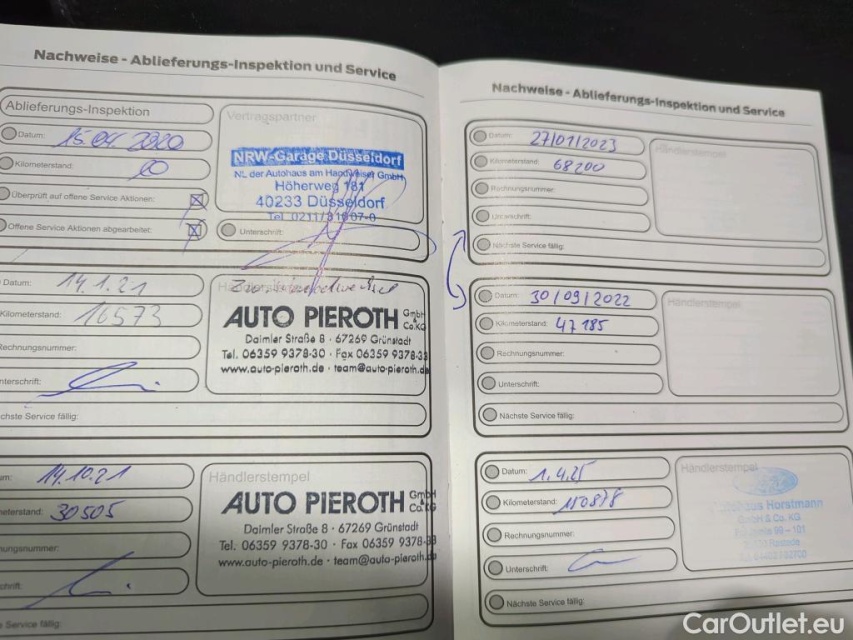 Nachweise - Ablieferungs-Inspektion und Service
Ablieferungs-Inspektion
Datum: 15 04 2020
Kilometerstand: 20
Überprüft auf offene Service Aktionen:
Offene Service Aktionen abgearbeitet:
Vertragspartner
NRW-Garage Düsseldorf
NL der Autohaus am Handweiser GmbH
Höherweg 181
40233 Düsseldorf
Tel. 0211/
Unterschrift:
Datum: 14.1.21
Kilometerstand: 16573
Rechnungsnummer:
nterschrift:
chste Service fällig:
AUTO PIEROTH GmbH & Co.KG
Daimler Straße 8 · 67269 Grünstadt
Tel. 06359 9378-30 · Fax 06359 9378-33
www.auto-pieroth.de · team@auto-pieroth.de
um: 14.10.21
meterstand: 30505
nungsnummer:
chrift:
Service fällig:
Händlerstempel
AUTO PIEROTH GmbH & Co KG
Daimler Straße 8 · 67269 Grünstadt
Tel. 06359 9378-30 · Fax 06359 9378-33
www.auto-pieroth.de · team@auto-pieroth.de
Nachweise - Ablieferungs-Inspektion und Service
Datum: 27/01/2023
Kilometerstand: 68200
Rechnungsnummer:
Unterschrift:
Nächste Service fällig:
Händlerstempel
Datum: 30/09/2022
Kilometerstand: 47185
Rechnungsnummer:
Unterschrift:
Nächste Service fällig:
Händlerstempel
Datum: 1.4.25
Kilometerstand: 110878
Rechnungsnummer:
Unterschrift:
Nächste Service fällig:
Händlerstempel
Autohaus Horstmann
GmbH & Co. KG
CarOutlet.eu